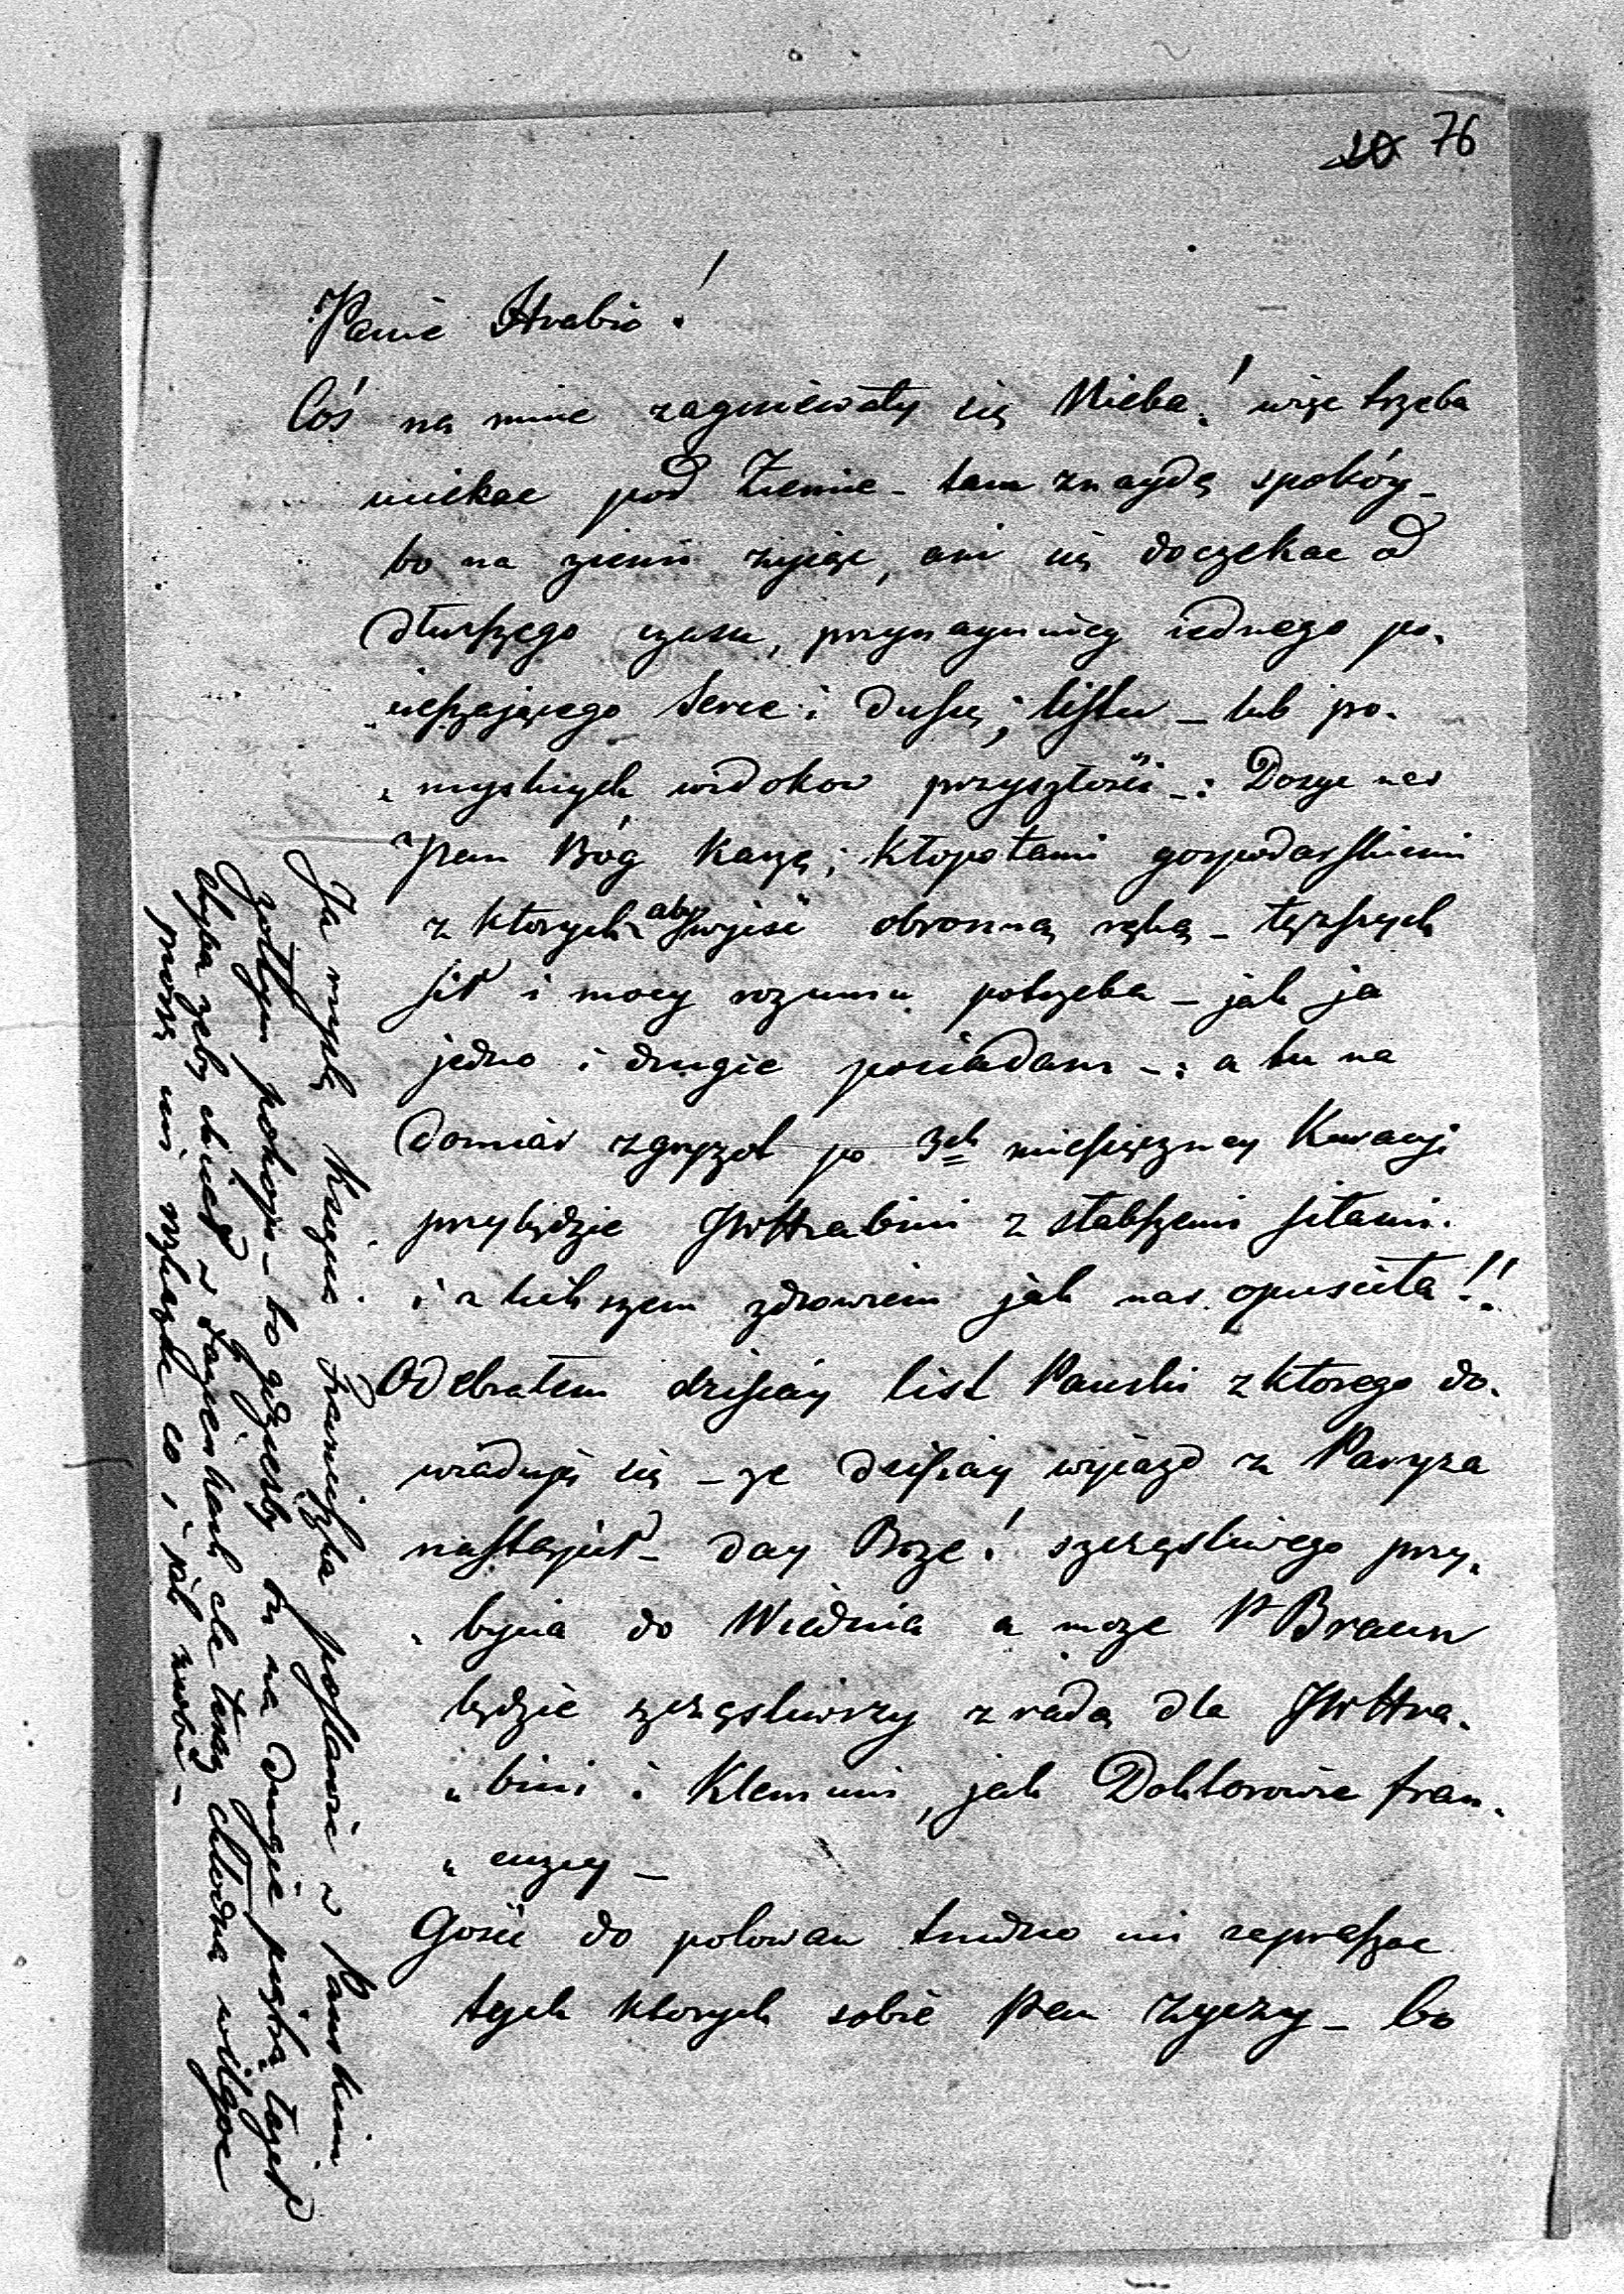 76
Panie Hrabio!
Coś na mnie zagniewały się Nieba! więc trzeba
uciekac pod Ziemie - tam znaydę spokóy -
bo na ziemi zyiąc, ani się doczekac od
dłuższego czasu, przynaymniey iednego po-
cieszającego serce i duszę; listu - lub po-
"myslnych widokow przyszłości -: Dosyc nas
Pan Bóg karze; kłopotami gospodarskiemi
z ktorych aby wyisć obronną ręką - tęższych
sił i mocy rozumu potrzeba - jak ja
jedno i drugie posiadam -: a tu na
domiar zgryzot po 3ch miesięczney Kuracyi
przybędzie JWHrabini z słabszemi siłami
i z lichszem zdrowiem jak nas opuściła!!
Odebrałem dzisiay list Pański z ktorego do-
wiaduję się - ze dzisiay wyiazd z Paryza
nastąpił - day Boze! szczęsliwego przy-
"bycia do Wiednia a moze P Braun
będzie szczęsliwszy z radą dla JWHra-
"bini i Klemuni, jak Doktorowie fran-
"cuzcy -
Gosci do polowan trudno mi zapraszac
tych ktorych sobie Pan zyczy - bo
Ja myslę Księcia Franciszka postawić w Pańskim
zołtym pokoju - bo gdzieżby tu na drugie piętro łaził
chyba zeby chciał w Łazienkach ale teraz chłodna wilgoc
proszę mi wskazac co i jak zrobić -